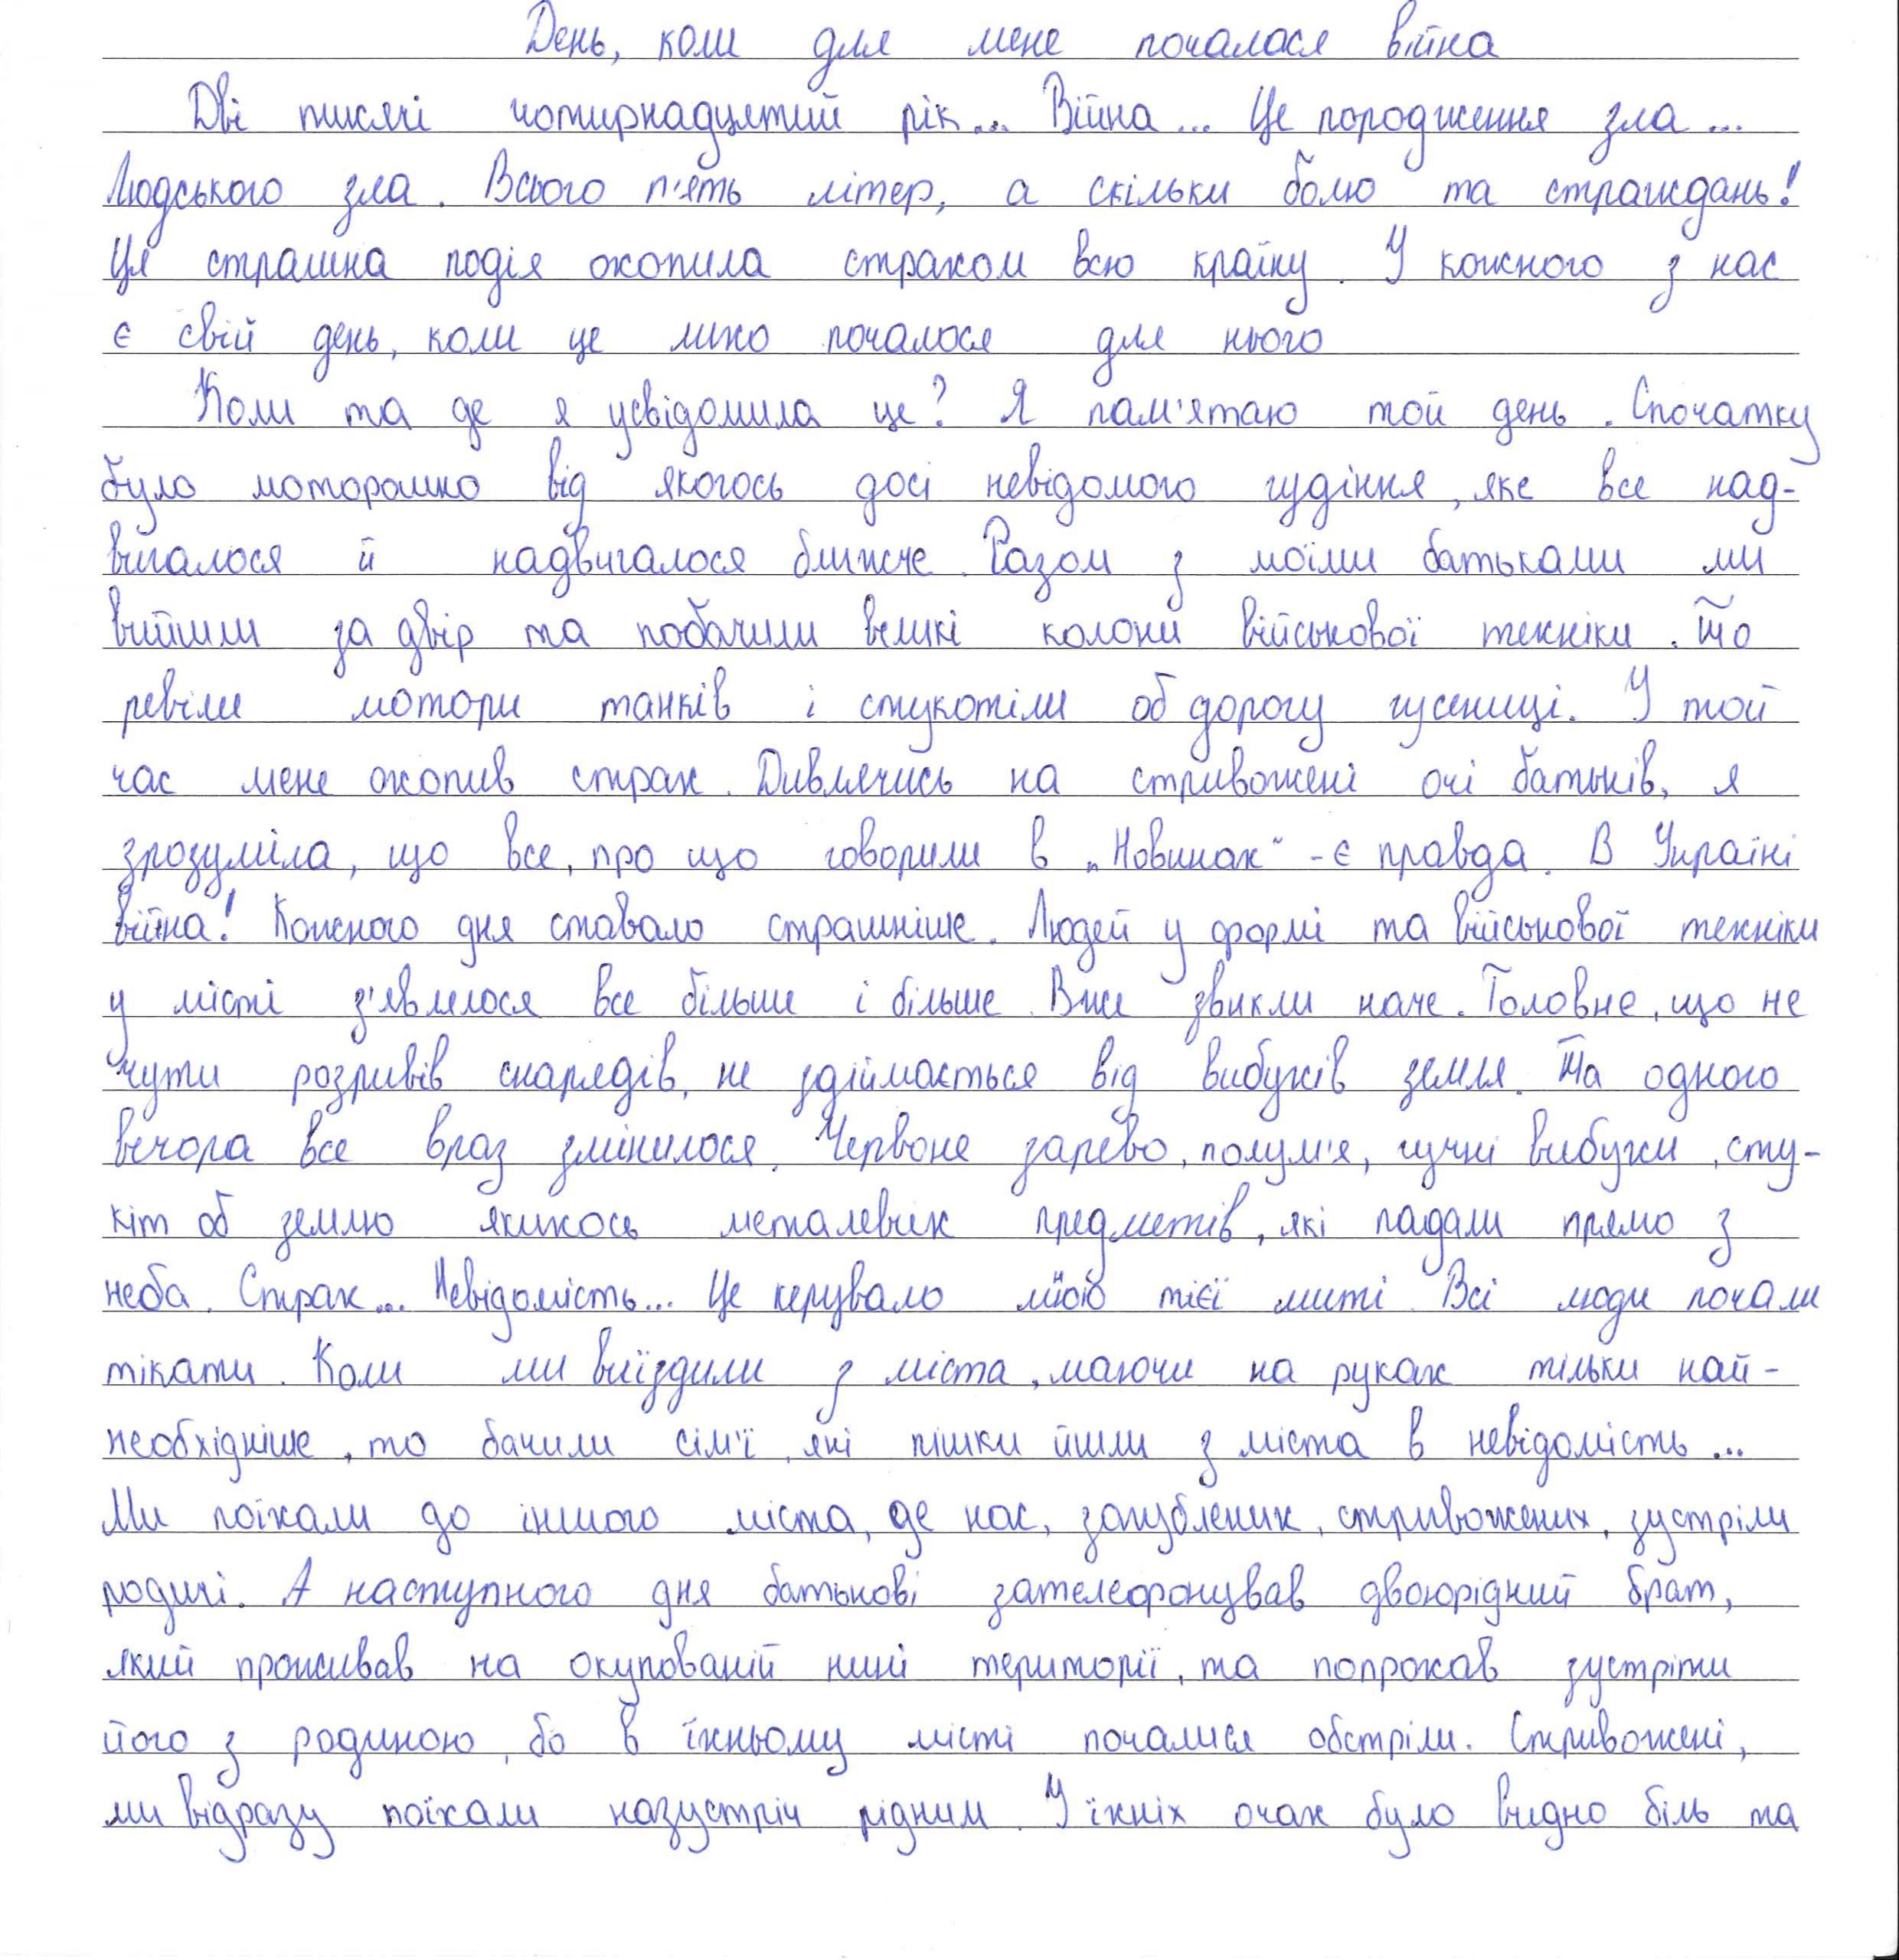 День, коли для мене почалася війна
Дві тисячі чотирнадцятий рік... Війна... Це породження зла...
Людського зла. Всього п'ять літер, а скільки болю та страждань!
Ця страшна подія охопила страхом всю країну. У кожного з нас
є свій день, коли це лихо почалося для нього
Коли та де я усвідомила це? Я пам'ятаю той день. Спочатку
було моторошно від якогось досі невідомого гудіння, яке все над-
вигалося й надвигалося ближче. Разом з моїми батьками ми
вийшли за двір та побачили великі колони військової техніки. То
ревіли мотори танків і стукотіли об дорогу гусениці. У той
час мене охопив страх. Дивлячись на стривожені очі батьків, я
зрозуміла, що все, про що говорили в „Новинах" - є правда. В Україні
війна! Кожного дня ставало страшніше. Людей у формі та військової техніки
у місті з'являлося все більше і більше. Вже звикли наче. Головне, що не
чути розривів снарядів, не здіймається від вибухів земля. Та одного
вечора все враз змінилося. Червоне зарево, полум'я, гучні вибухи, сту-
кіт об землю якихось металевих предметів, які падали прямо з
неба. Страх... Невідомість... Це керувало мною тієї миті. Всі люди почали
тікати. Коли ми виїздили з міста, маючи на руках тільки най-
необхідніше, то бачили сім'ї, які пішки йшли з міста в невідомість...
Ми поїхали до іншого міста, де нас, загублених, стривожених, зустріли
родичі. А наступного дня батькові зателефонував двоюрідний брат,
який проживав на окупованій нині території, та попрохав зустріти
його з родиною, бо в їхньому місті почалися обстріли. Стривожені,
ми відразу поїхали назустріч рідним. У їхніх очах було видно біль та